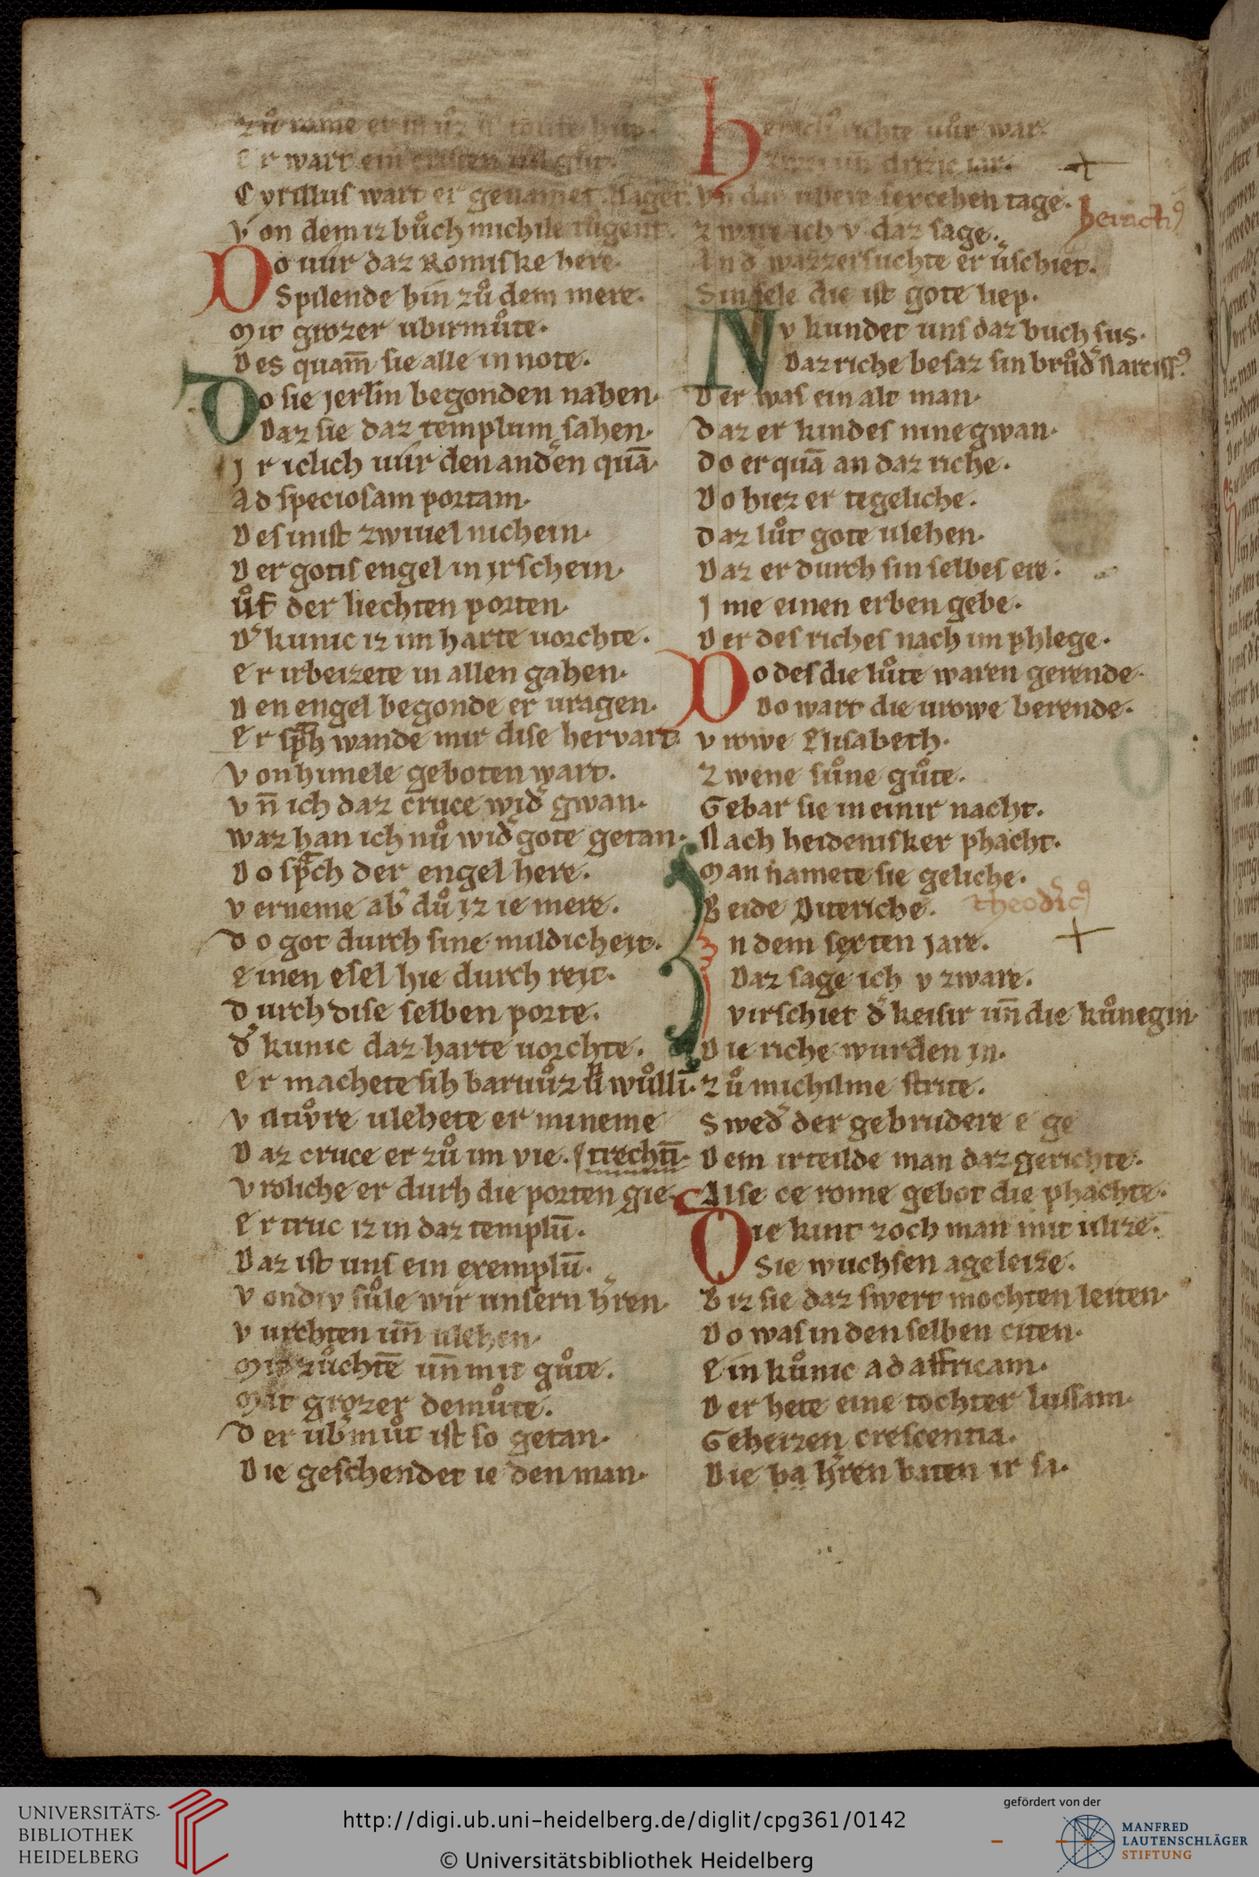 zů rome er in
Er wart ein cristen uil gůt.
Cyrillus wart er genamet. sager.
Von dem iz bůch michile tugent.
Do uůr daz Romiske here.
Spilende hin zů dem mere.
Mit grozer ubirmůte.
Des quam̄ sie alle in note.
Do sie jerl̄m begonden nahen.
Daz sie daz templum sahen.
Jr iclich uůr den anden quā.
Ad speciosam portam.
Des inist zwiuel nichein.
Der gotis engel in irschein.
ůf der liechten porten.
Dʼ kunic iz im harte uorchte.
Er irbeizete in allen gahen.
Den engel begonde er uragen.
Er sp̄ch wande mir dise heruart.
Von himele geboten wart.
Vn̄ ich daz cruce wid gwan.
waz han ich nů wid gote getan.
Do sp̄ch der engel here.
Verneme abʼ dů iz ie mere.
Do got durch sine mildicheit.
Einen esel hie durch reit.
Durch dise selben porte.
dʼ kunic daz harte uorchte.
Er machete sih baruůz uň wůllī.
Vil tiv̊re ulehete er min eme
Daz cruce er zů im vie. trechtī.
Vroliche er durh die porten gie.
Er truc iz in daz templū.
Daz ist uns ein exemplū.
Von div sůle wir unsern hʼren.
Vurchten un̄ ulehen.
Mit zůchtē un̄ mit gůte.
Mit grozer demůte.
Der ubʼmůt ist so getan.
Die geschendet ie den man.
Heracli richte uůr war.
zwei un drizic iar.
Vn̄ dar ubere sexcehen tage.
zware ich v daz sage.
And wazzersuchte er uʼschiet.
Sin sele die ist gote liep.
Heracliꝰ
Nv kundet uns daz buch sus.
Daz riche besaz sin brůdʼ Narcissꝰ.
Der was ein alt man.
daz er kindes nine gwan.
do er quā an daz riche.
Do hiez er tegeliche.
daz lůt gote ulehen.
Daz er durch sin selbes ere.
Ime einen erben gebe.
Der des riches nach im phlege.
Do des die lůte waren gerende.
Do wart die urowe berende.
vrowe Elisabeth.
Zwene sůne gůte.
Gebar sie in einir nacht.
Nach heidenisker phacht.
Man namete sie geliche.
Beide Diteriche.
Theodʼicꝰ
In dem sexten jare.
Daz sage ich v zware.
virschiet dʼ keisir un̄ die kůnegin.
Die riche wurden in.
Zů michilme strite.
Swedʼ der gebrudere e ge
Dem irteilde man daz gerichte.
Alse ce rome gebot die phachte.
Die kint zoch man mit ulize.
Sie wuchsen ageleize.
Biz sie daz swert mochten leiten.
Do was in den selben citen.
Ein kůnic ad affricam.
Der hete eine tochter lussam.
Geheizen crescentia.
Die ba hʼren baten ir sa.
UNIVERSITÄTS-
BIBLIOTHEK
HEIDELBERG
http://digi.ub.uni-heidelberg.de/diglit/cpg361/0142
© Universitätsbibliothek Heidelberg
gefördert von der
MANFRED
LAUTENSCHLÄGER
STIFTUNG